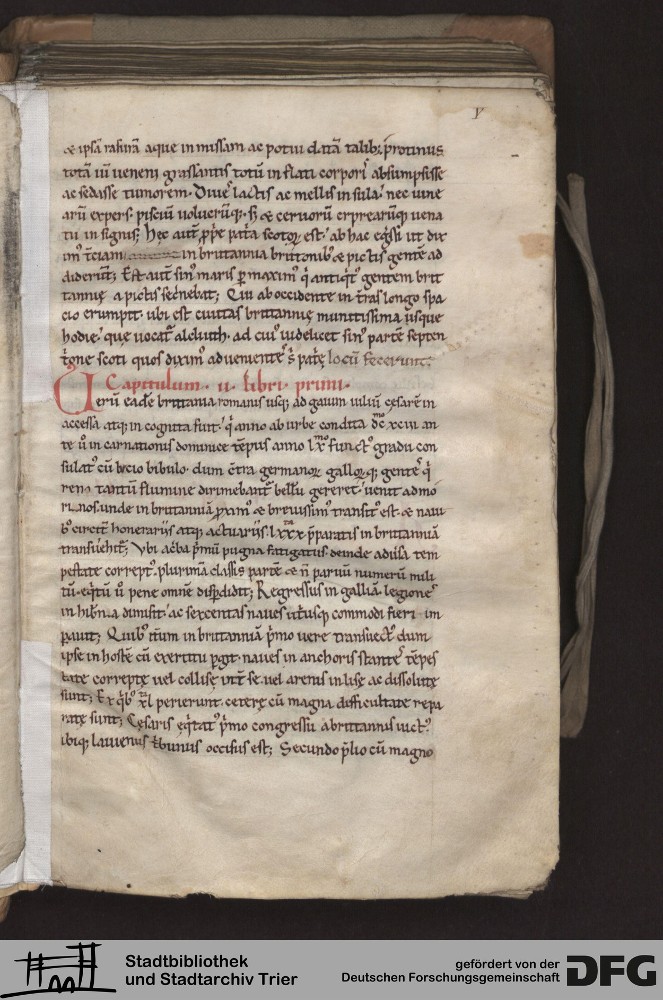 V
& ipsā rasurā aque in missam ac potui datā talib; protinus
totā uī ueneni grassantis totū inflati corporis absumpsisse
ac sedasse tumorem. Diues lactis ac mellis insula. nec uine
arū expers. pisciū uolucrūq; sȝ & ceruorū caprearūq; uena
tu insignis; Hęc autē p̱pe patͥa scotoꝝ est. ab hac eg̃ssi ut dix
imꝰ t̃ciam in brittannia brittonibꝰ & pictis gentē ad
diderunt; Est autē sinꝰ maris p̱maximꝰ qͥ antiqͥtꝰ gentem britt
tannię a pictis sec̃nebat; Qui ab occidente in t̃ras longo spa
cio erumpit. ubi est ciuitas brittannię munitissima usque
hodie. quę uocat̃ alcluith. ad cuiꝰ uidelicet sinꝰ partē septen
tͥone scoti quos diximꝰ aduenientes s̱ patͥę locū fecerunt;
Capitulum. ii. libri. primi.
Uerū eadē brittania romanis usq; ad gaium iuliū cęsarē in
accessa atq; incognita fuit. qͥ anno ab urbe condita dcͦ.xciii an
te u̾o incarnationis dominicę tēpus anno lxͫͦ functꝰ gradu con
sulatꝰ cū lucio bibulo. dum cͨtra germanoꝝ galloꝝq; gentes qͥ
reno tantū flumine dirimebant̃ bellū gereret. uenit ad mo
rinos. unde in brittanniā p̱ximꝰ & breuissimꝰ transitꝰ est. & naui
bꝰ circit̃ honerariis atq; actuariis. lxxxͣ p̃paratis in brittanniā
transuehit̃; Ubi acͣba pͥmū pugna fatigatus deinde aduersa tem
pestate correptꝰ. plurimā classis partē & n̄ paruū numerū mili
tū. eqͥtū u̾o pene omnē disp̱didit; Regressus in galliā. legiones
in hib̃na dimisit. ac sexcentas naues utͥusq; commodi fieri im
p̱auit; Quibꝰ it̃um in brittanniā pͥmo uere transuectꝰ. dum
ipse in hostē cū exercitu p̱git. naues in anchoris stantes tēpes
tate correptę uel collisę int̃ se. uel arenis inlisę ac dissolutę
sunt; Ex qͥbꝰ xl perierunt. ceterę cū magna difficultate repa
ratę sunt; Cęsaris eqͥtatꝰ pͥmo congressu a brittannis uictꝰ.
ibiq; lauienus tͥbunus occisus est; Secundo p̃lio cū magno
Stadtbibliothek
und Stadtarchiv Trier
gefördert von der
Deutschen Forschungsgemeinschaft
DFG